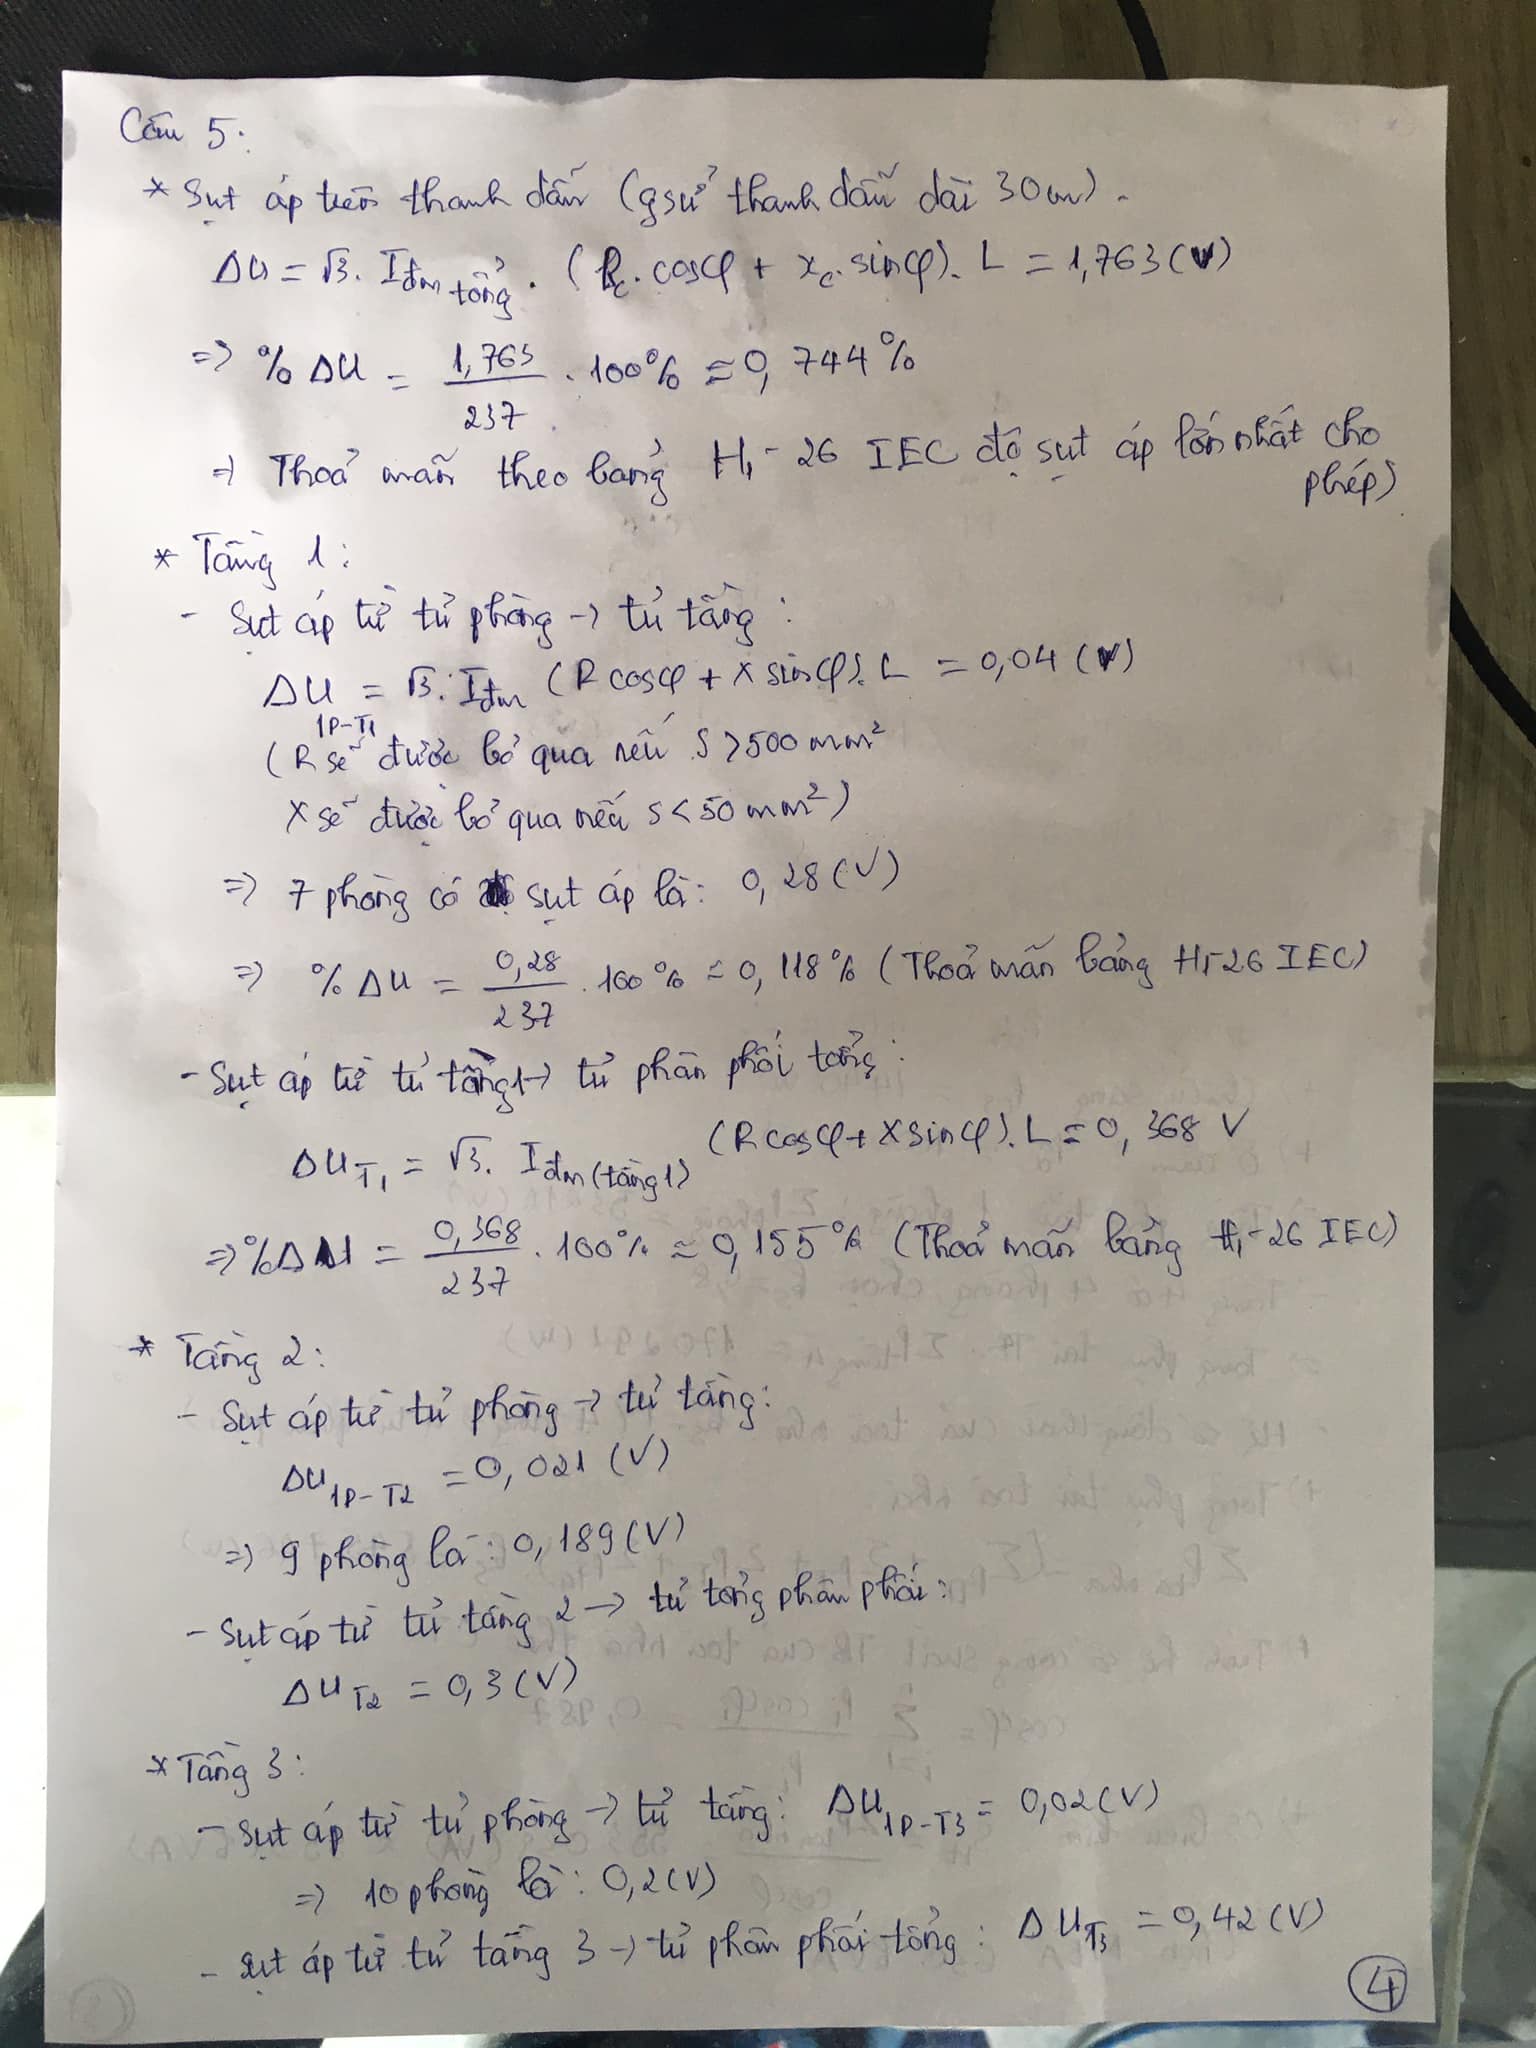 Câu 5:
* Sụt áp trên thanh dẫn (gsử thanh dẫn dài 30m).
ΔU = √3. Iđm tổng. (Rc. cosφ + xc. sinφ). L = 1,763 (V)
=> % ΔU = 1,763 / 237 . 100% ≈ 0, 744%
=> Thoả mãn theo bảng H1-26 IEC độ sụt áp lớn nhất cho
phép)
* Tầng 1:
- Sụt áp từ tủ phòng -> tủ tầng:
ΔU 1P-T1 = √3. Iđm (R cosφ + X sinφ). L = 0,04 (V)
(R sẽ được bỏ qua nếu S > 500 mm²
X sẽ được bỏ qua nếu S < 50 mm²)
=> 7 phòng có sụt áp là: 0, 28 (V)
=> % ΔU = 0,28 / 237 . 100% ≈ 0, 118% (Thoả mãn bảng H1-26 IEC)
- Sụt áp từ tủ tầng 1 -> tủ phân phối tổng:
ΔU T1 = √3. Iđm (tầng 1) (R cosφ + X sinφ). L = 0, 368 V
=> % ΔU = 0,368 / 237 . 100% ≈ 0, 155% (Thoả mãn bảng H1-26 IEC)
* Tầng 2:
- Sụt áp từ tủ phòng -> tủ tầng:
ΔU 1P-T2 = 0, 021 (V)
=> 9 phòng là: 0, 189 (V)
- Sụt áp từ tủ tầng 2 -> tủ tổng phân phối:
ΔU T2 = 0,3 (V)
* Tầng 3:
- Sụt áp từ tủ phòng -> tủ tầng: ΔU 1P-T3 = 0,02 (V)
=> 10 phòng là: 0,2 (V)
- Sụt áp từ tủ tầng 3 -> tủ phân phối tổng: ΔU T3 = 0,42 (V)
4